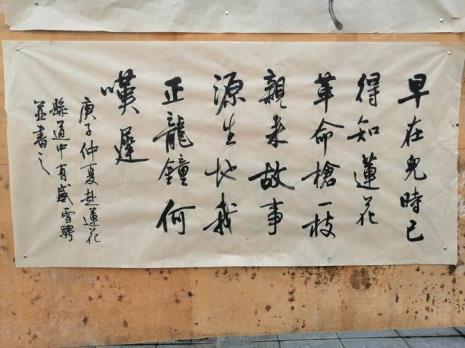 早在兒時已
得知蓮花
革命槍一枝
親来故事
源生地我
正龍鐘何
嘆遲
庚子仲夏赴蓮花
縣道中有感雪騁
並書之